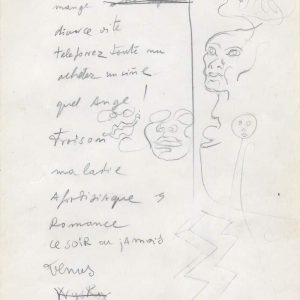 mange
divorce vite
telefonez toute nu
achetez un
quel Ange !
Troison
maladie
Afrodisiaque
Romance
ce soir ou jamais
Venus